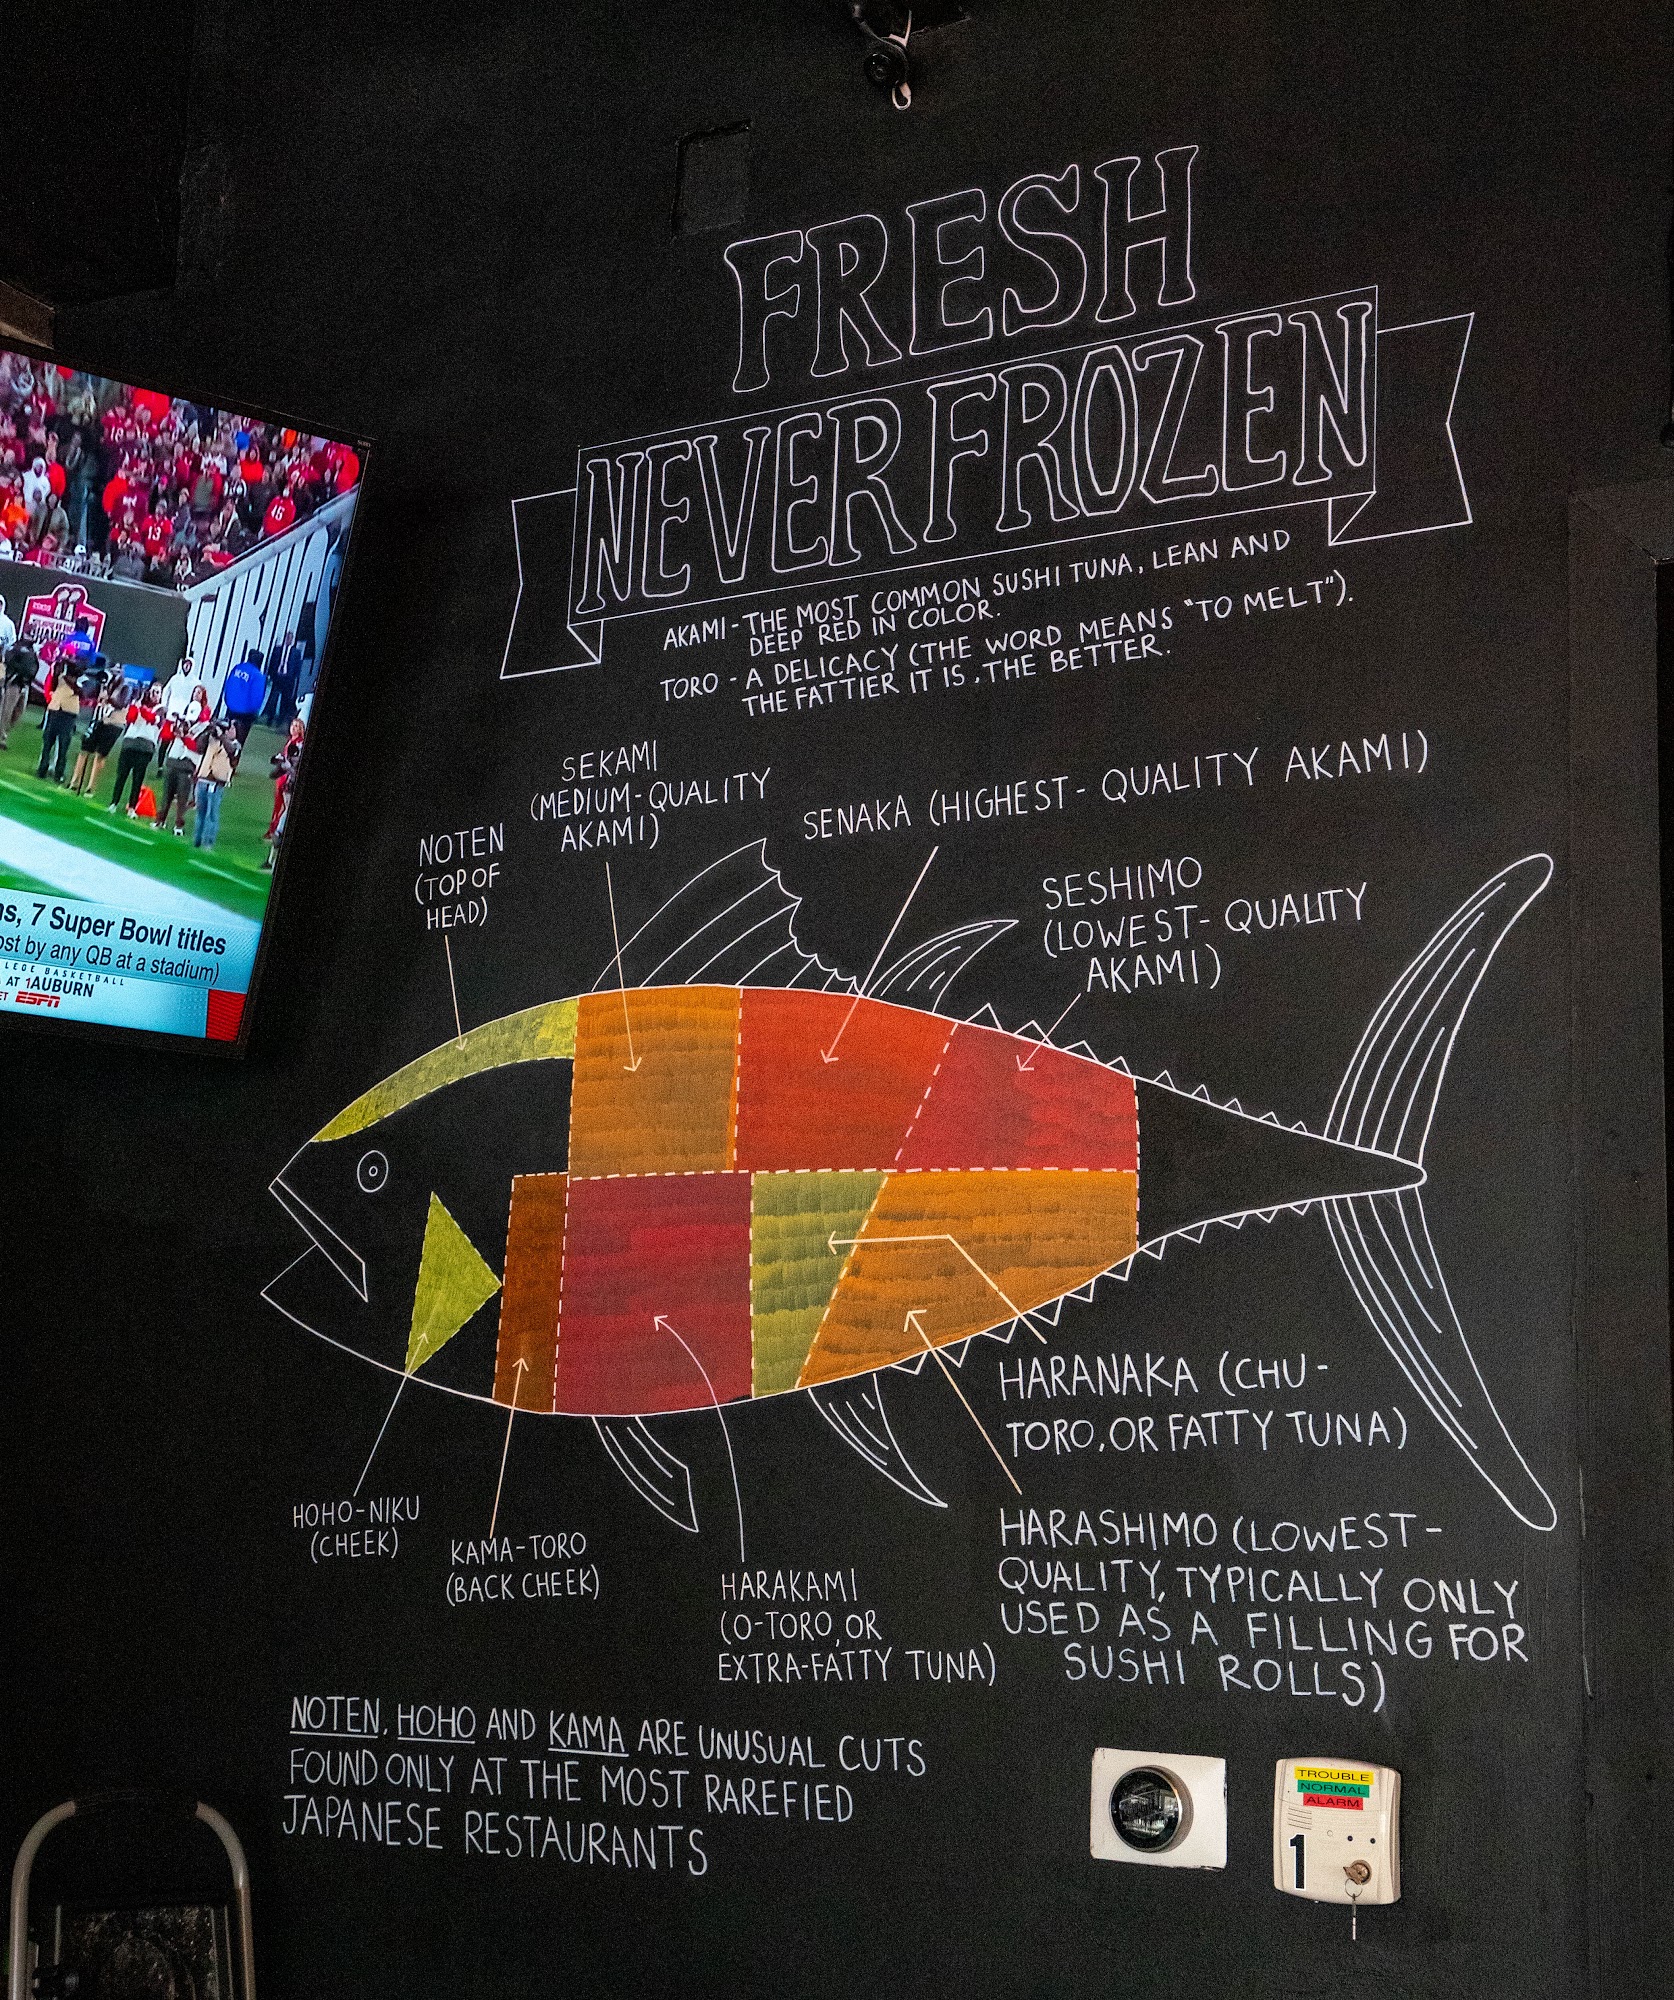 FRESH
NEVER FROZEN
AKAMI - THE MOST COMMON SUSHI TUNA, LEAN AND
DEEP RED IN COLOR.
TORO - A DELICACY (THE WORD MEANS "TO MELT").
THE FATTIER IT IS, THE BETTER.
SEKAMI
(MEDIUM-QUALITY
AKAMI)
SENAKA (HIGHEST-QUALITY AKAMI)
NOTEN
(TOP OF
HEAD)
SESHIMO
(LOWEST-QUALITY
AKAMI)
HARANAKA (CHU-
TORO, OR FATTY TUNA)
HOHO-NIKU
(CHEEK)
KAMA-TORO
(BACK CHEEK)
HARAKAMI
(O-TORO, OR
EXTRA-FATTY TUNA)
HARASHIMO (LOWEST-
QUALITY, TYPICALLY ONLY
USED AS A FILLING FOR
SUSHI ROLLS)
NOTEN, HOHO AND KAMA ARE UNUSUAL CUTS
FOUND ONLY AT THE MOST RAREFIED
JAPANESE RESTAURANTS
7 Super Bowl titles
by any QB at a stadium)
BASKETBALL
AT 1AUBURN
ET ESPN
13
TROUBLE
NORMAL
ALARM
1